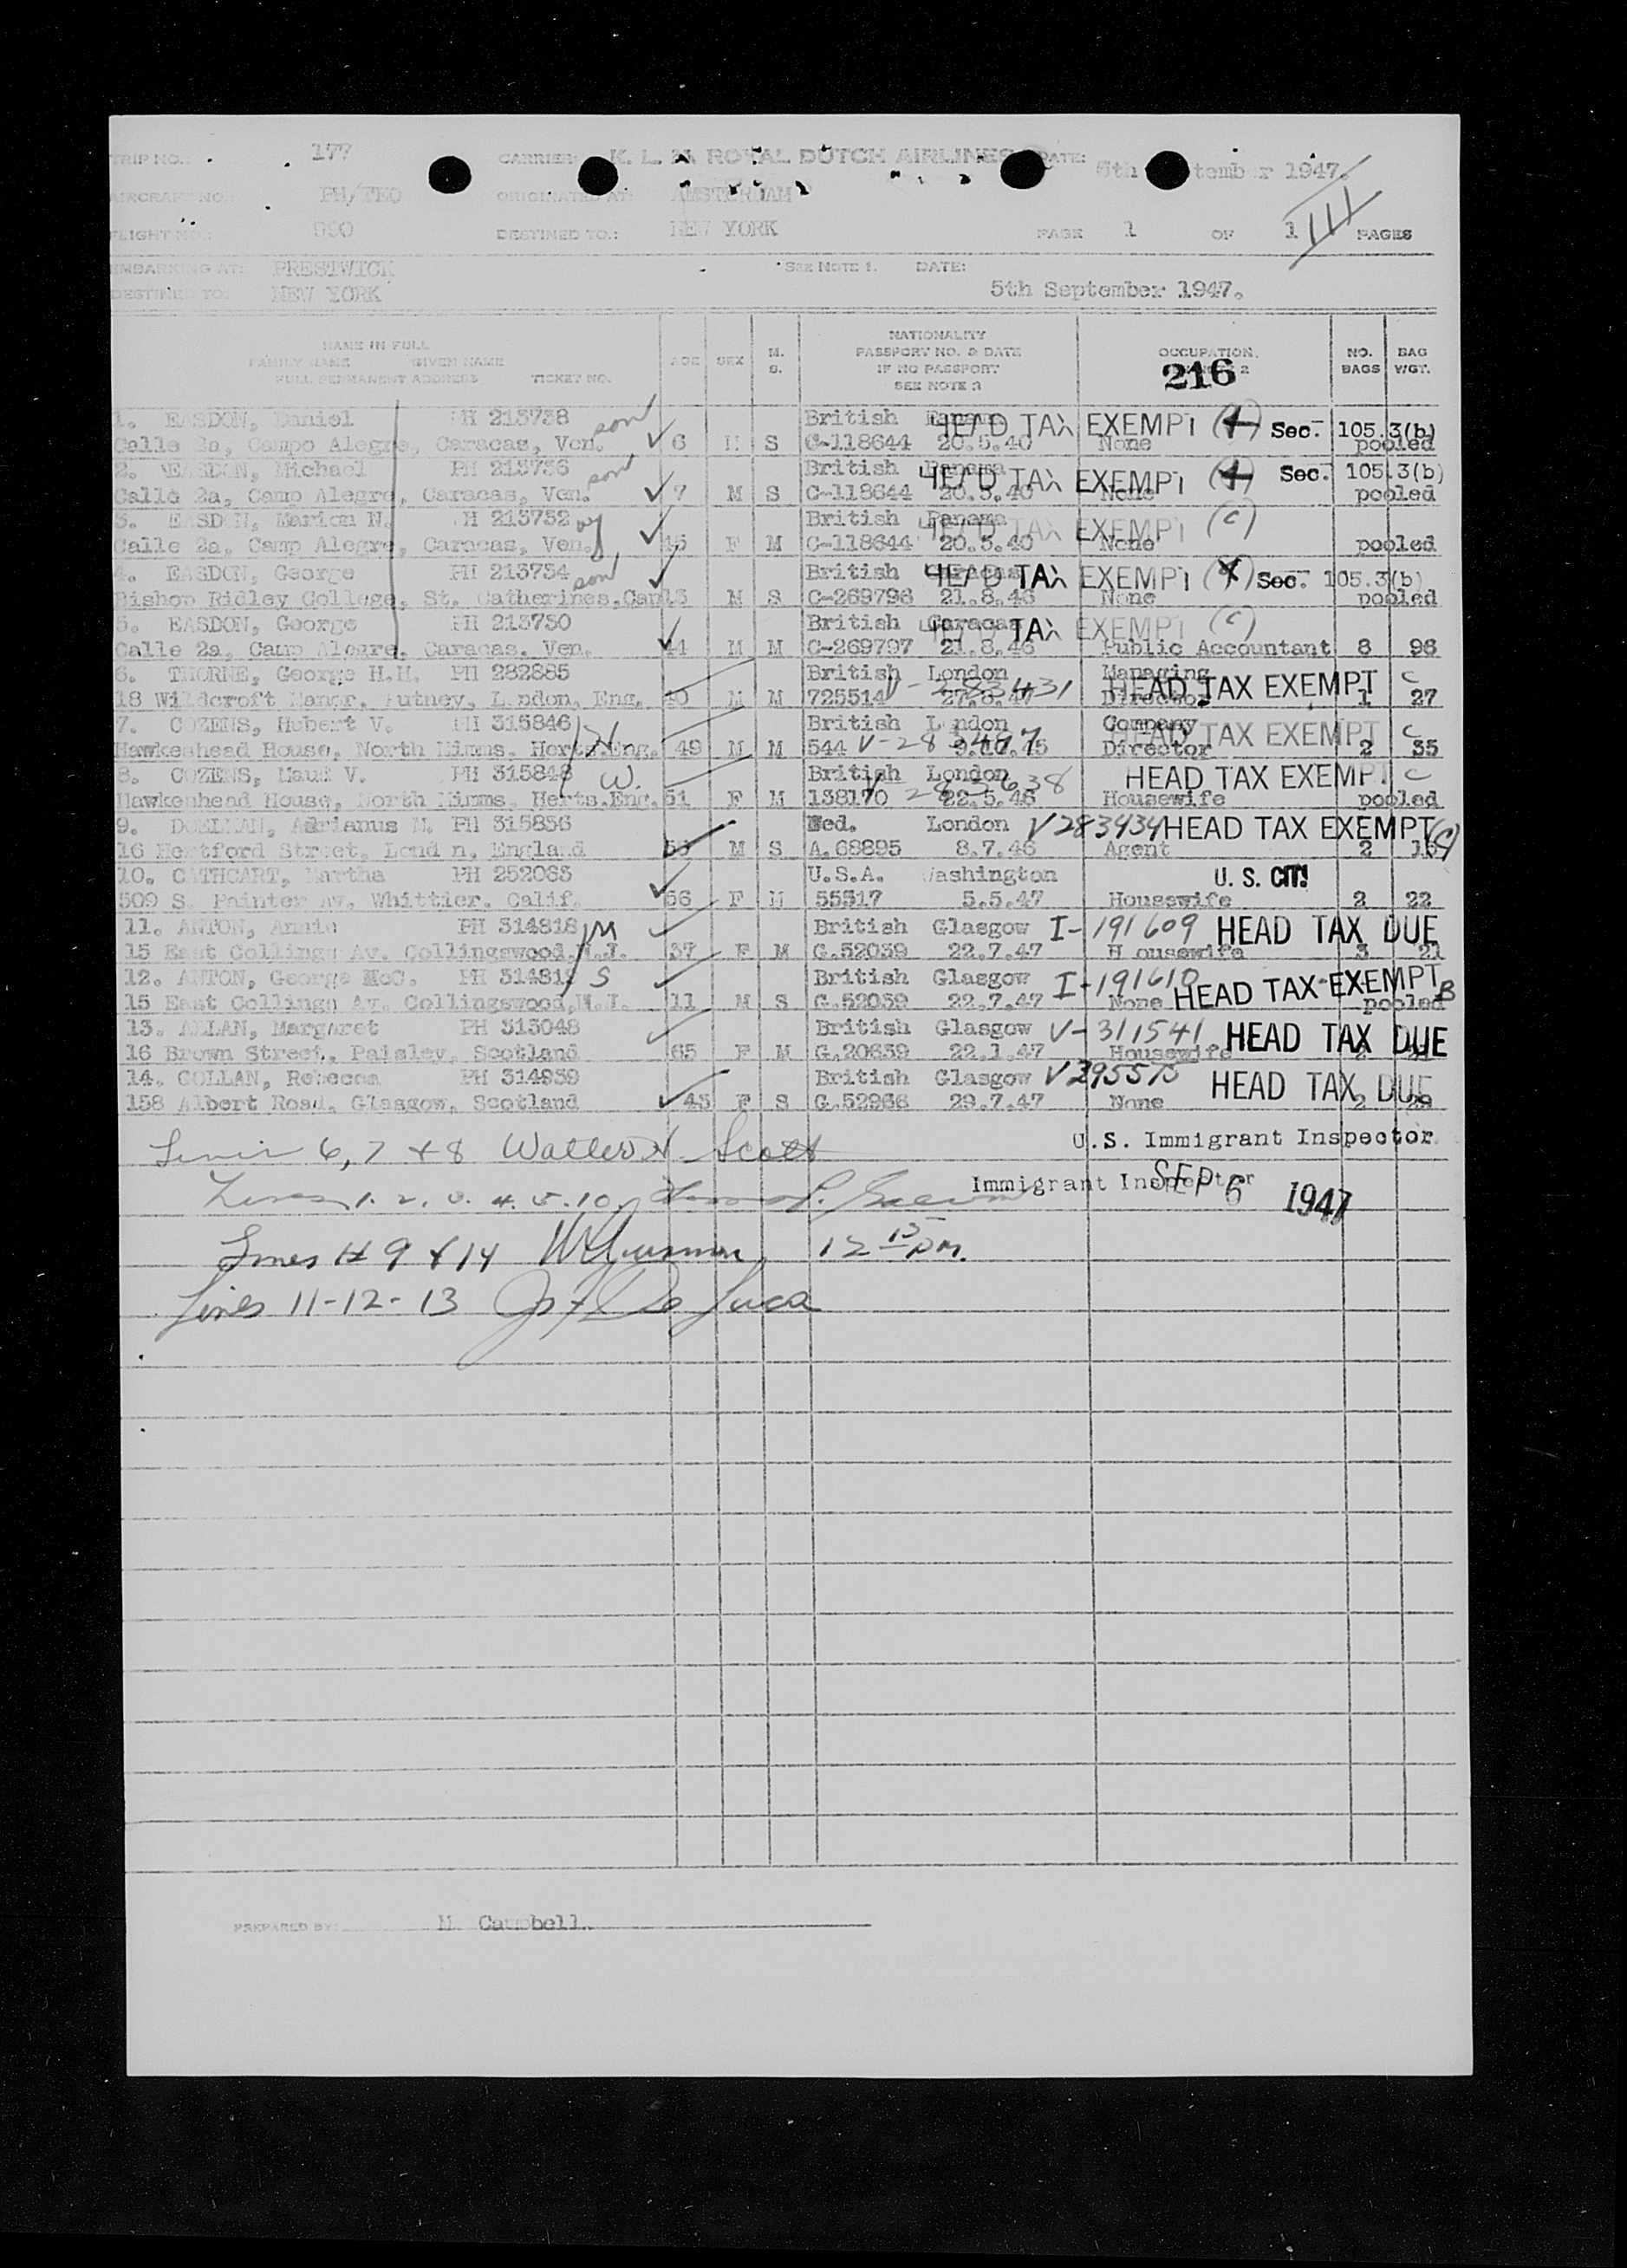 TRIP NO.: 177 CARRIER: K. L. M ROYAL DUTCH AIRLINES DATE: 5th tember 1947.
AIRCRAFT NO.: PH/TEO ORIGINATED AT: AMSTERDAM
FLIGHT NO.: 990 DESTINED TO.: NEW YORK PAGE 1 OF 1 PAGES
EMBARKING AT: PRESTWICK SEE NOTE 1. DATE:
DESTINED TO: NEW YORK 5th September 1947.
NAME IN FULL
FAMILY NAME GIVEN NAME
FULL PERMANENT ADDRESS TICKET NO.
AGE SEX M. S.
NATIONALITY
PASSPORT NO. & DATE
IF NO PASSPORT
SEE NOTE 3
OCCUPATION. 2
216
NO. BAGS
BAG WGT.
1. EASDON, Daniel PH 213738 son British Panama HEAD TAX EXEMPT Sec. 105.3(b)
Calle 2a, Campo Alegre, Caracas, Ven. 6 M S C-118644 20.5.40 None pooled
2. EASDON, Michael PH 213736 son British Panama HEAD TAX EXEMPT Sec. 105.3(b)
Calle 2a, Camp Alegre, Caracas, Ven. 7 M S C-118644 20.5.40 None pooled
3. EASDON, Marion N. PH 213732 British Panama HEAD TAX EXEMPT (C)
Calle 2a, Camp Alegre, Caracas, Ven. 45 F M C-118644 20.5.40 None pooled
4. EASDON, George PH 213734 son British Caracas HEAD TAX EXEMPT Sec. 105.3(b)
Bishop Ridley College, St. Catherines.Can 13 M S C-269796 21.8.46 None pooled
5. EASDON, George PH 213730 British Caracas HEAD TAX EXEMPT (C)
Calle 2a, Camp Alegre, Caracas. Ven. 44 M M C-269797 21.8.46 Public Accountant 8 96
6. THORNE, George H.H. PH 282885 British London Managing HEAD TAX EXEMPT C
18 Wildcroft Manor, Putney, London, Eng. M M 725514 V-283431 27.8.47 Director 1 27
7. COZENS, Hubert V. PH 315846 H British London Company HEAD TAX EXEMPT C
Hawkeshead House, North Mimms. Herts.Eng. 49 M M 544 Director 2 35
8. COZENS, Maud V. PH 315848 W. British London HEAD TAX EXEMPT C
Hawkeshead House, North Mimms, Herts.Eng. 51 F M 138170 22.5.46 Housewife pooled
9. DOELMAN, Adrianus M. PH 315836 Ned. London V283434 HEAD TAX EXEMPT (C)
16 Hertford Street, London, England M S A.68895 8.7.46 Agent 2
10. CATHCART, Martha PH 252083 U.S.A. Washington U. S. CIT!
509 S. Painter Av. Whittier, Calif. 66 F M 55317 5.5.47 Housewife 2 22
11. ANTON, Annie PH 314818 M British Glasgow I-191609 HEAD TAX DUE
15 East Collings Av. Collingswood,N.J. 37 F M G.52039 22.7.47 H ousewife 3 21
12. ANTON, George McC. PH 314819 S British Glasgow I-191610 HEAD TAX EXEMPT B
15 East Collings Av. Collingswood,N.J. 11 M S G.52039 22.7.47 None pooled
13. ALLAN, Margaret PH 313048 British Glasgow V-311541 HEAD TAX DUE
16 Brown Street, Paisley, Scotland 65 F M G.20639 22.1.47 Housewife
14. COLLAN, Rebecca PH 314939 British Glasgow V295575 HEAD TAX DUE
158 Albert Road, Glasgow, Scotland 45 F S G.52966 29.7.47 None 2 29
Lines 6, 7 & 8 Walter H Scott U.S. Immigrant Inspector
Lines 1. 2. 3. 4. 5. 10 Immigrant Inspector SEP 6 1947
Lines # 9 & 14 12 15 PM.
Lines 11-12-13 De Luca
PREPARED BY: M. Campbell.